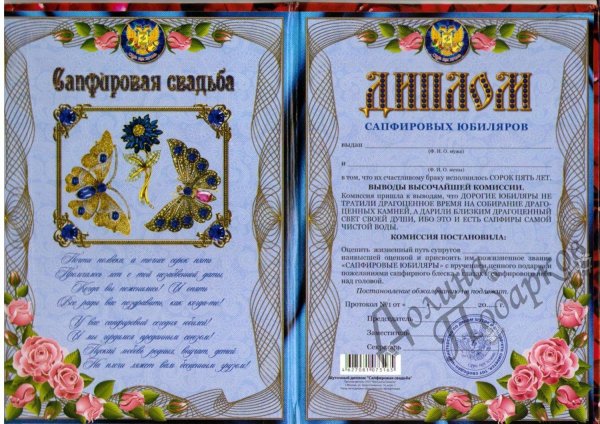 Сапфировая свадьба
Почти полвека, а точнее сорок пять
Промчалось лет с той незабвенной даты,
Когда вы поженились! И опять
Все рады вас поздравить, как когда-то!
У вас сапфировый сегодня юбилей!
И мы гордимся преданным союзом!
Пускай любовь родных, внучат, детей
На плечи ляжет вам бесценным грузом!
ДИПЛОМ
САПФИРОВЫХ ЮБИЛЯРОВ
выдан
(Ф. И. О. мужа)
и
(Ф. И. О. жены)
в том, что их счастливому браку исполнилось СОРОК ПЯТЬ ЛЕТ.
ВЫВОДЫ ВЫСОЧАЙШЕЙ КОМИССИИ.
Комиссия пришла к выводам, что ДОРОГИЕ ЮБИЛЯРЫ НЕ
ТРАТИЛИ ДРАГОЦЕННОЕ ВРЕМЯ НА СОБИРАНИЕ ДРАГО-
ЦЕННЫХ КАМНЕЙ, А ДАРИЛИ БЛИЗКИМ ДРАГОЦЕННЫЙ
СВЕТ СВОЕЙ ДУШИ, ИБО ЭТО И ЕСТЬ САПФИРЫ САМОЙ
ЧИСТОЙ ВОДЫ.
КОМИССИЯ ПОСТАНОВИЛА:
Оценить жизненный путь супругов
наивысшей оценкой и присвоить им пожизненное звание
«САПФИРОВЫЕ ЮБИЛЯРЫ» с вручением ценного подарка и
пожеланиями сапфирового блеска глаз и сапфирового неба
над головой.
Постановление обжалованию не подлежит.
Протокол №1 от « 20 г.
Председатель
Заместитель
Секретарь
Долина
Подарков
4627081975163